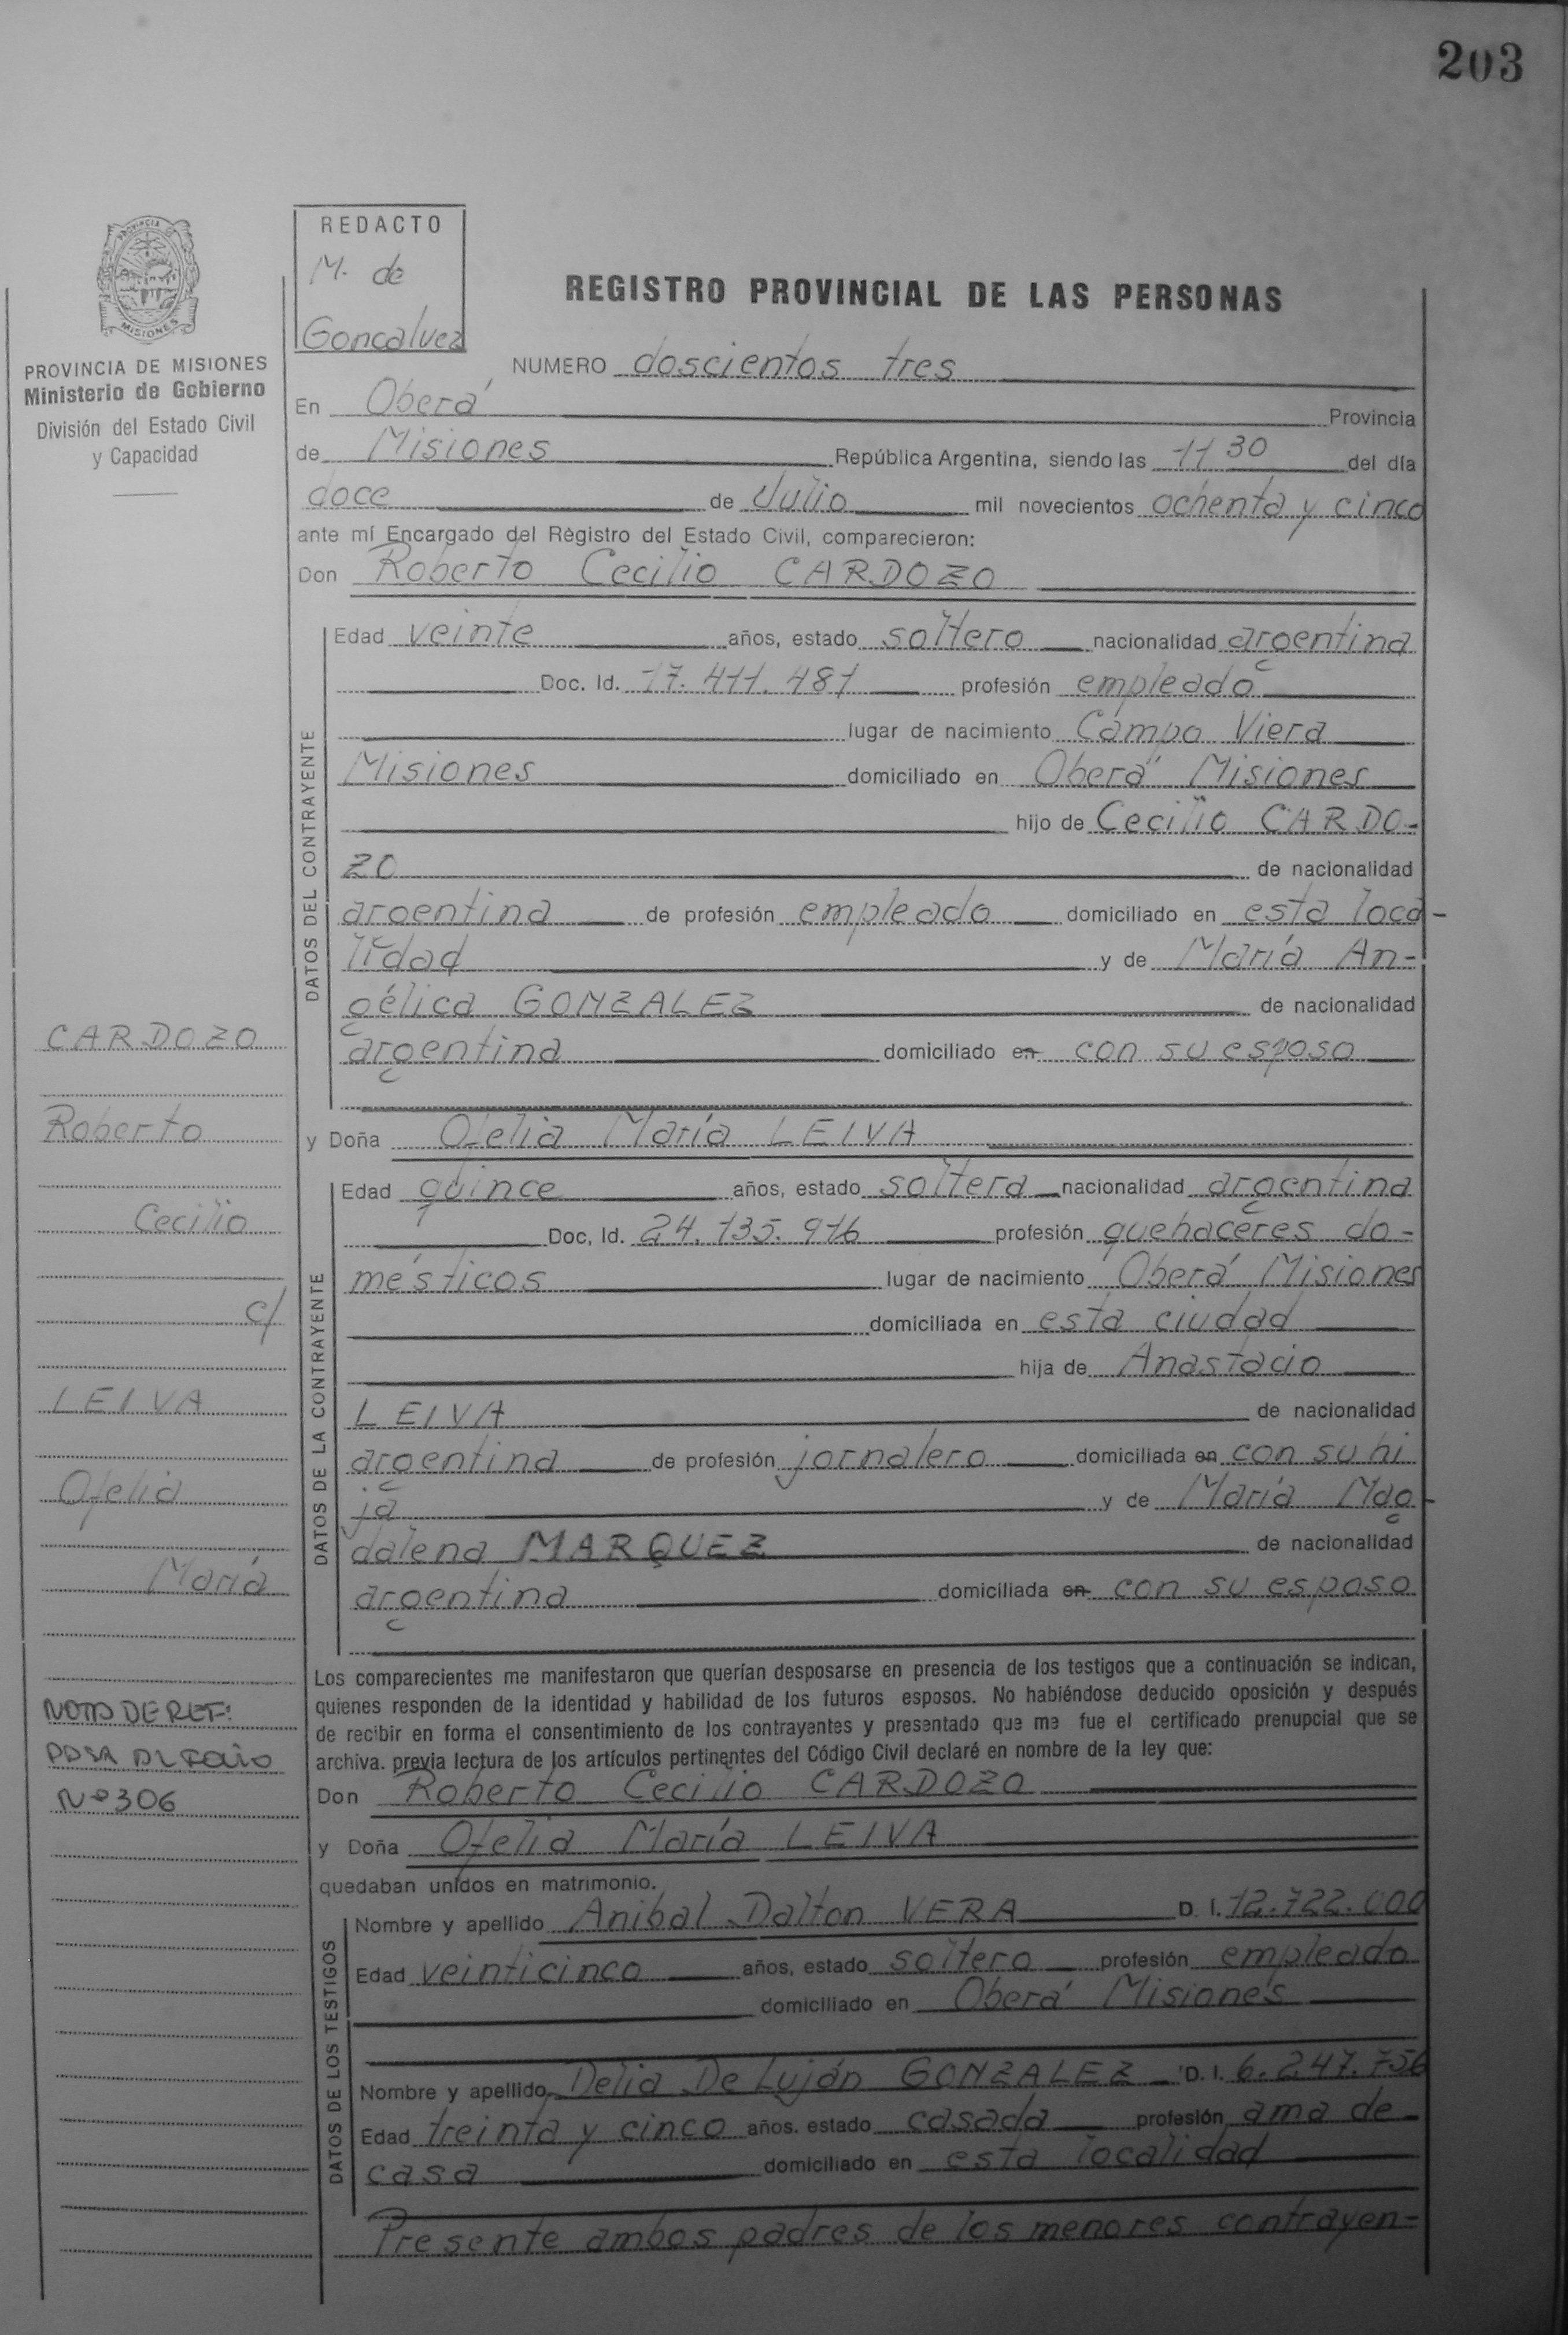 203
PROVINCIA DE
MISIONES
PROVINCIA DE MISIONES
Ministerio de Gobierno
División del Estado Civil
y Capacidad
CARDOZO
Roberto
Cecilio
c/
LEIVA
Ofelia
María
NOTA DE REF:
PASA AL FOLIO
Nº 306
REDACTO
M. de
Goncalvez
REGISTRO PROVINCIAL DE LAS PERSONAS
NUMERO doscientos tres
En Oberá Provincia
de Misiones República Argentina, siendo las 11 30 del día
doce de Julio mil novecientos ochenta y cinco
ante mí Encargado del Règistro del Estado Civil, comparecieron:
Don Roberto Cecilio CARDOZO
DATOS DEL CONTRAYENTE
Edad veinte años, estado soltero nacionalidad argentina
Doc. Id. 17.411.481 profesión empleado
lugar de nacimiento Campo Viera
Misiones domiciliado en Oberá Misiones
hijo de Cecilio CARDO-
ZO de nacionalidad
argentina de profesión empleado domiciliado en esta loca-
lidad y de María An-
gélica GONZALEZ de nacionalidad
argentina domiciliado en con su esposo
y Doña Ofelia María LEIVA
DATOS DE LA CONTRAYENTE
Edad quince años, estado soltera nacionalidad argentina
Doc, Id. 24.135.916 profesión quehaceres do-
mésticos lugar de nacimiento Oberá Misiones
domiciliada en esta ciudad
hija de Anastacio
LEIVA de nacionalidad
argentina de profesión jornalero domiciliada en con su hi
ja y de María Mag-
dalena MARQUEZ de nacionalidad
argentina domiciliada en con su esposo
Los comparecientes me manifestaron que querían desposarse en presencia de los testigos que a continuación se indican,
quienes responden de la identidad y habilidad de los futuros esposos. No habiéndose deducido oposición y después
de recibir en forma el consentimiento de los contrayentes y presentado que me fue el certificado prenupcial que se
archiva. previa lectura de los artículos pertinentes del Código Civil declaré en nombre de la ley que:
Don Roberto Cecilio CARDOZO
y Doña Ofelia María LEIVA
quedaban unidos en matrimonio.
DATOS DE LOS TESTIGOS
Nombre y apellido Anibal Dalton VERA D. I. 12.722.000
Edad veinticinco años, estado soltero profesión empleado
domiciliado en Oberá Misiones
Nombre y apellido Delia De Luján GONZALEZ D. I. 6.247.756
Edad treinta y cinco años. estado casada profesión ama de
casa domiciliado en esta localidad
Presente ambos padres de los menores contrayen-